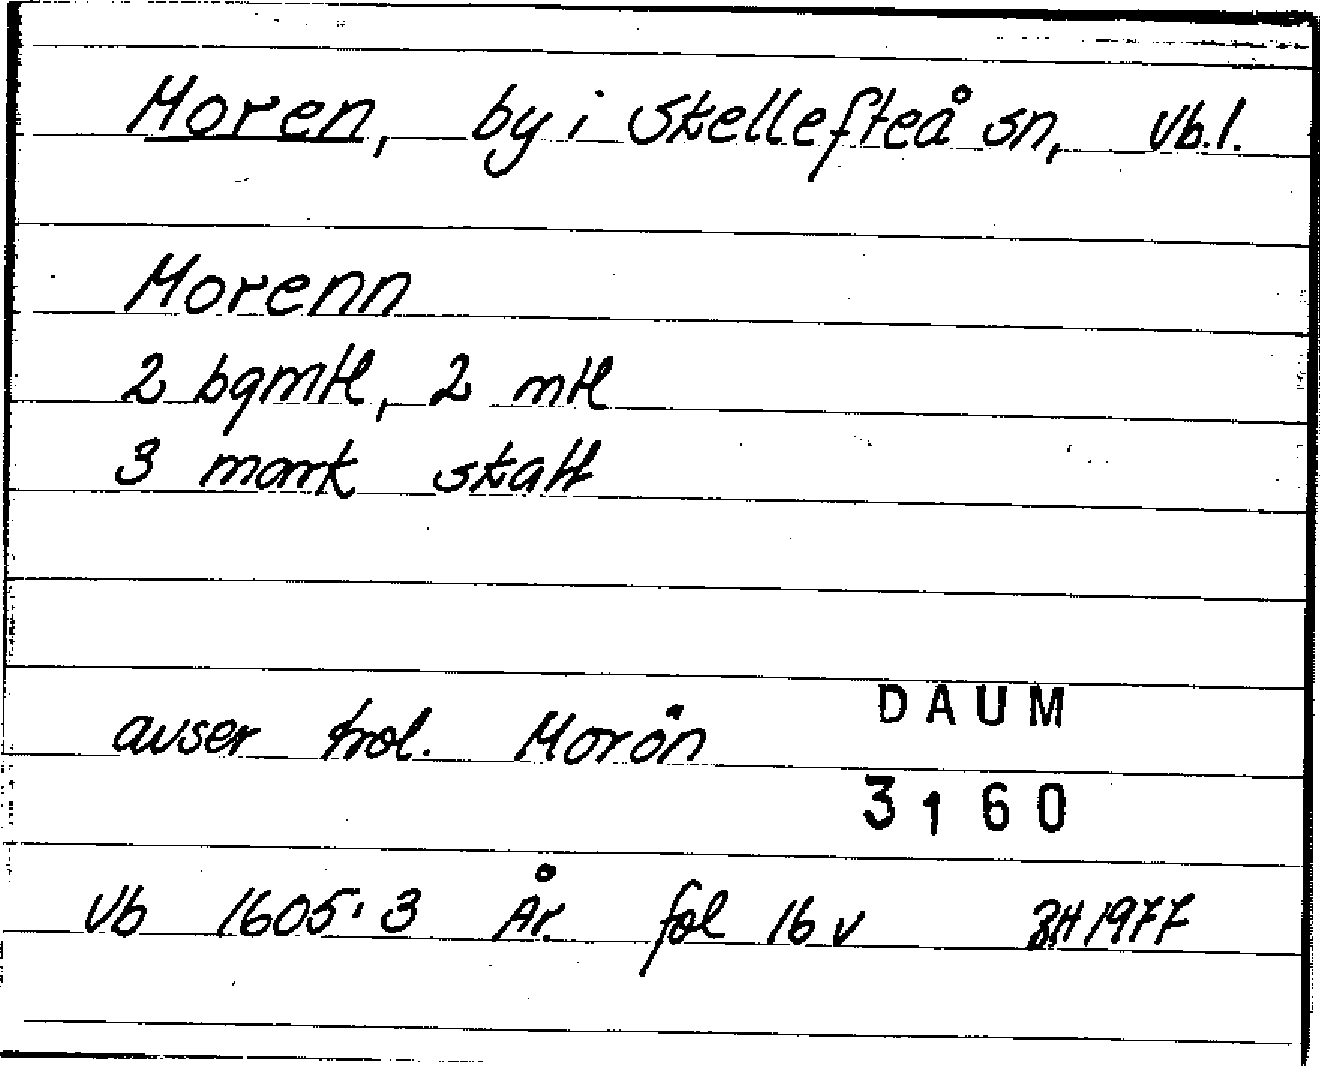 Moren, by i Skellefteå sn, Vb.l.
Morenn
2 bgmtl, 2 mtl
3 mark skatt
avser trol. Morön
DAUM
3160
Vb 1605:3 År. fol 16 v BH 1977